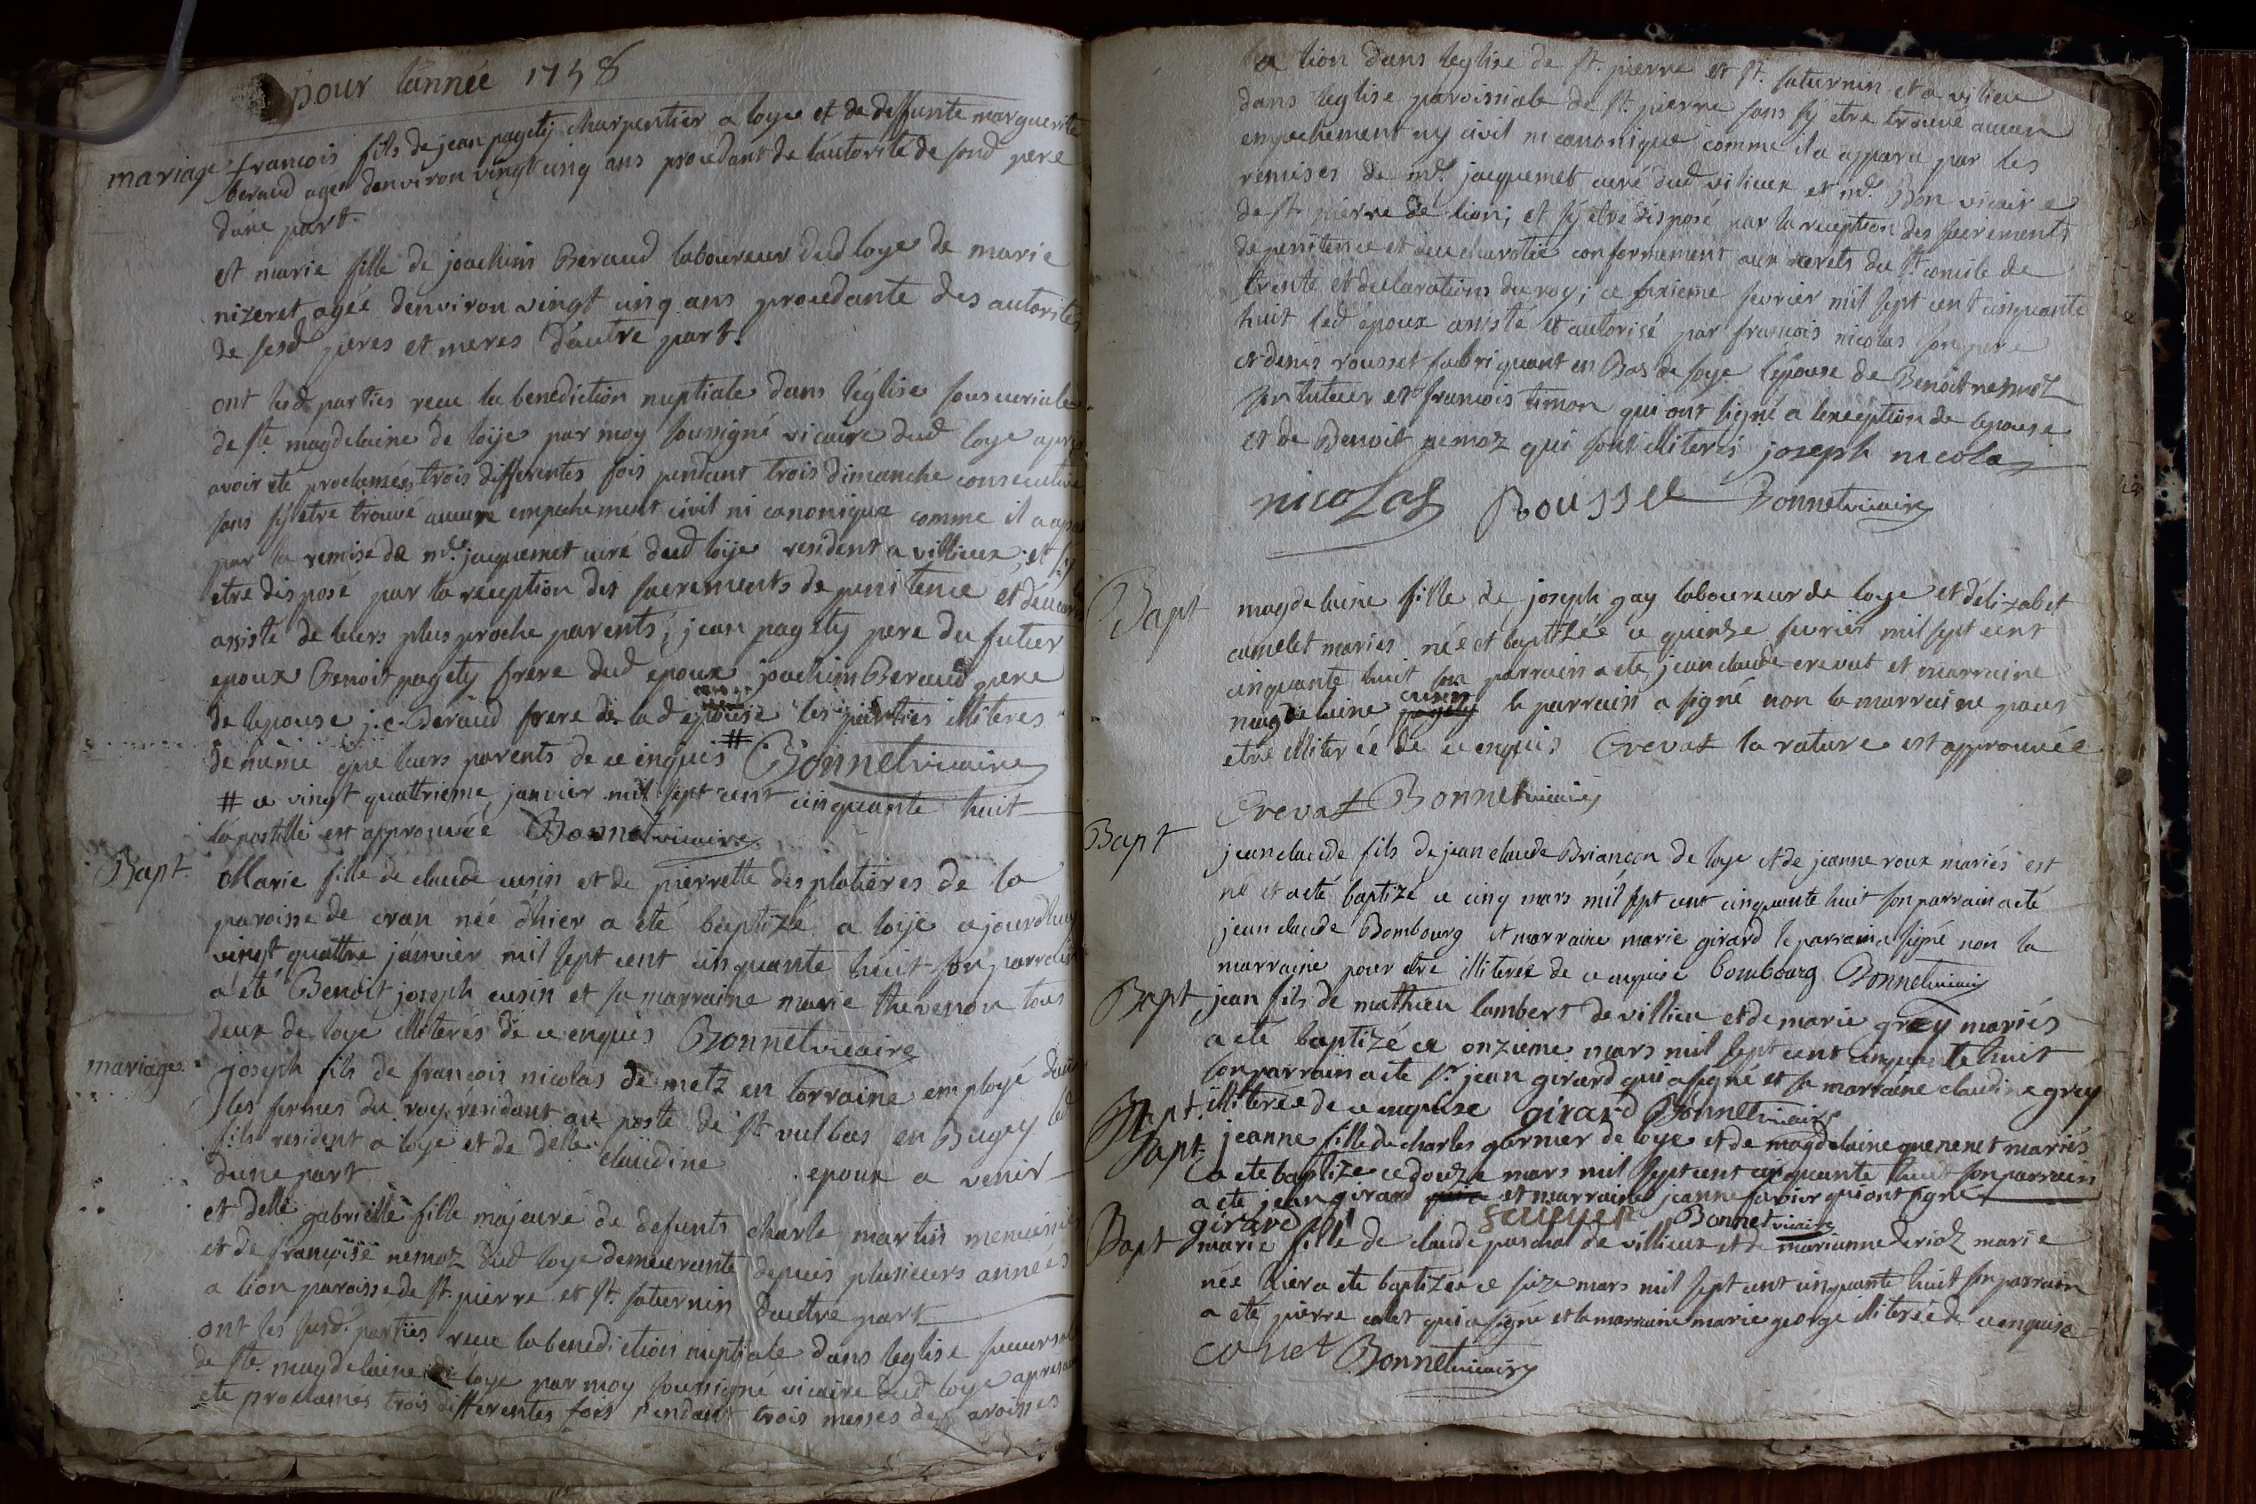 pour lannée 1758
mariage francois fils de jean pagety charpentier a loye et de deffunte marguerite
beraud agé denviron vingt cinq ans procedant de lautorité de sond pere
dune part.
et marie fille de joachim Beraud laboureur dud loye de marie
nizeret agée denviron vingt cinq ans procedante des autorités
de sesd peres et meres dautre part.
ont lesd parties recu la benediction nuptiale dans léglise succuriale
de ste magdelaine de loije par moy soussigné vicaire dud loye apres
avoir ete proclamées trois differentes fois pendant trois dimanche consecutive
sans sÿ etre trouvé aucune empechement civil ni canonique comme il a
par la remise de mr. jacquemet curé dud loije resident a villieux; et sy
etre disposé par la reception des sacrements de penitence et
assisté de leurs plus proche parents; jean pagety pere du futur
epoux Benoit pagety frere dud epoux joachim Beraud pere
de lepouse j. c. Beraud frere de lad epouse les parties illiteres
de même que leurs parents de ce enquis # Bonnet vicaire
# ce vingt quattrieme janvier mil sept cent cinquante huit
lapostille est approuvée Bonnet vicaire
Bapt. Marie fille de claude cusin et de pierrette desplatieres de la
paroisse de cran née d'hier a eté baptizé a loije cejourdhuy
vingt quattre janvier mil sept cent cinquante huit son parrain
a eté Benoit joseph cusin et sa marraine marie thevenon tous
deux de loye illiterés de ce enquis Bonnet vicaire
mariage joseph fils de francois nicolas de metz en lorraine employé dans
les fermes du roy residant au poste de st vulbas en Bugey led
fils resident a loye et de delle claudine epoux a venir
dune part
et delle gabrielle fille majeure de defunts charle martin menuisier
et de francoise nemoz dud loye demeurante depuis plusieurs années
a lion paroisse de st. pierre et st. saturnin dautre part
ont les susd. parties recu la benediction nuptiale dans leglise succursale
de ste. magdelaine de loye par moy soussigné vicaire dud loye apres
ete proclames trois differentes fois pendant trois messes de paroisses
a lion dans leglise de st. pierre et st. saturnin et a vilieu
dans leglise paroissiale de st. pierre sans sÿ etre trouvé aucun
empechement ny civil ni canonique comme il a apparu par les
remises de mr. jacquemet curé dud vilieux et mr. Bon vicaire
de st. pierre de lion; et sÿ etre disposé par la reception des sacrements
de penitence et deucharistie conformement aux decrets du st. concile de
trente et declarations du roy; ce sixieme fevrier mil sept cent cinquante
huit led epoux assisté et autorisé par francois nicolas son pere
et denis rousset fabriquant en Bas de soye lépouse de Benoit nemoz
son tuteur et francois timon qui ont signé a lexception de lepouse
et de Benoit nemoz qui sont illiterés joseph nicolas
nicolas Rousset Bonnet vicaire
Bapt magdelaine fille de joseph gay laboureur de loye et délizabet
camelet mariés née et baptizée ce quinze fevrier mil sept cent
cinquante huit son parrain a eté jean claude crevat et marraine
magdelaine cusin pagety le parrain a signé non la marraine pour
etre illiterée de ce enquis Crevat la rature est approuvée
Crevat Bonnet vicaire
Bapt jean claude fils de jean claude Briançon de loye et de jeanne roux mariés est
né et a eté baptizé ce cinq mars mil sept cent cinquante huit son parrain a eté
jean claude Bombourg et marraine marie girard le parrain a signé non la
marraine pour etre illiteree de ce enquise bombourg Bonnet vicaire
Bapt jean fils de mathieu lambert de villieu et de marie grey mariés
a eté baptizé ce onzieme mars mil sept cent cinquante huit
son parrain a ete sr. jean girard qui a signé et sa marraine claudine grey
Bapt. illiterée de ce enquise girard Bonnet vicaire
Bapt jeanne fille de charles garnier de loye et de magdelaine quenenet mariés
a ete baptizé ce douze mars mil sept cent cinquante huit son parrain
a ete jean girard et marraine jeanne favier qui ont signé
girard favier Bonnet vicaire
Bapt marie fille de claude paschal de villieux et de marianne derioz marié
née hier a ete baptizée ce seize mars mil sept cent cinquante huit son parrain
a eté pierre collet qui a signé et la marraine marie george illiterée de ce enquise
collet Bonnet vicaire